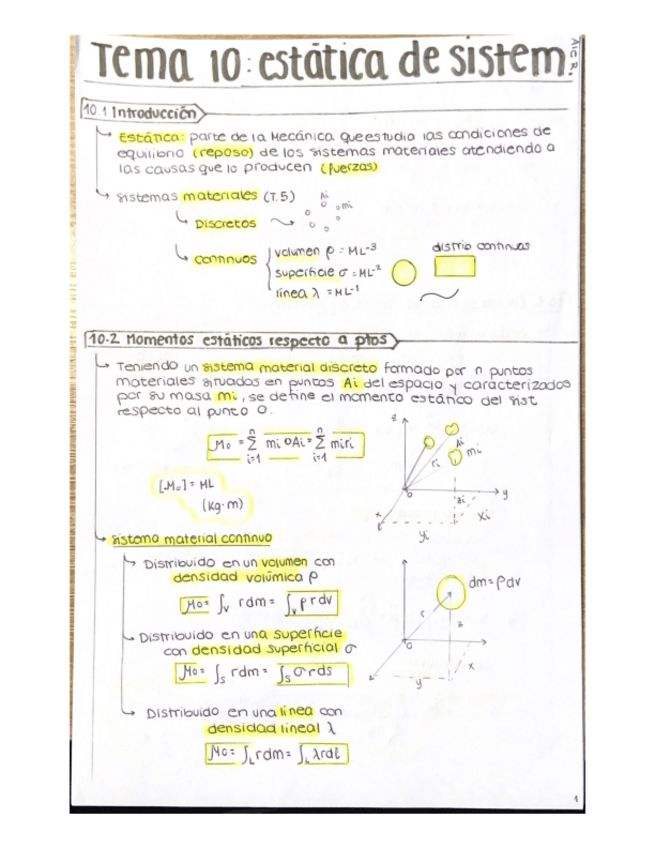 Tema 10: estática de sistem.
Alc R.
10.1 Introducción
Estática: parte de la Mecánica que estudia las condiciones de
equilibrio (reposo) de los sistemas materiales atendiendo a
las causas que lo producen (fuerzas)
Sistemas materiales (T.5)
Ai
mi
Discretos
Continuos
volumen ρ = ML-3
superficie σ = ML-2
línea λ = ML-1
distrib continuas
10.2 Momentos estáticos respecto a ptos
Teniendo un sistema material discreto formado por n puntos
materiales situados en puntos Ai del espacio y caracterizados
por su masa mi, se define el momento estático del sist
respecto al punto O.
Mo = n∑i=1 mi OAi = n∑i=1 miri
[Mo] = ML
(Kg·m)
z
Ai
mi
ri
o
y
zi
x
xi
yi
Sistema material continuo
Distribuido en un volumen con
densidad volúmica ρ
Mo = ∫v rdm = ∫v ρrdv
dm = ρdv
r
z
o
x
y
Distribuido en una superficie
con densidad superficial σ
Mo = ∫s rdm = ∫s σrds
Distribuido en una línea con
densidad lineal λ
Mo = ∫L rdm = ∫L λrdl
1